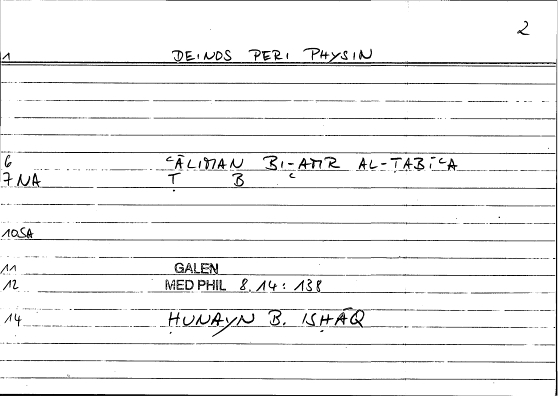 2
1 DEINOS PERI PHYSIN
6 ʿĀLIMAN BI-AMR AL-ṬABĪʿA
7 NA Ṭ B ʿ
10SA
11 GALEN
12 MED PHIL 8.14: 138
14 ḤUNAYN B. ISḤĀQ